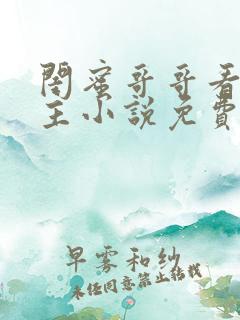 閣蜜哥哥看
主小說免費
早雾和纱
未经同意禁止转载